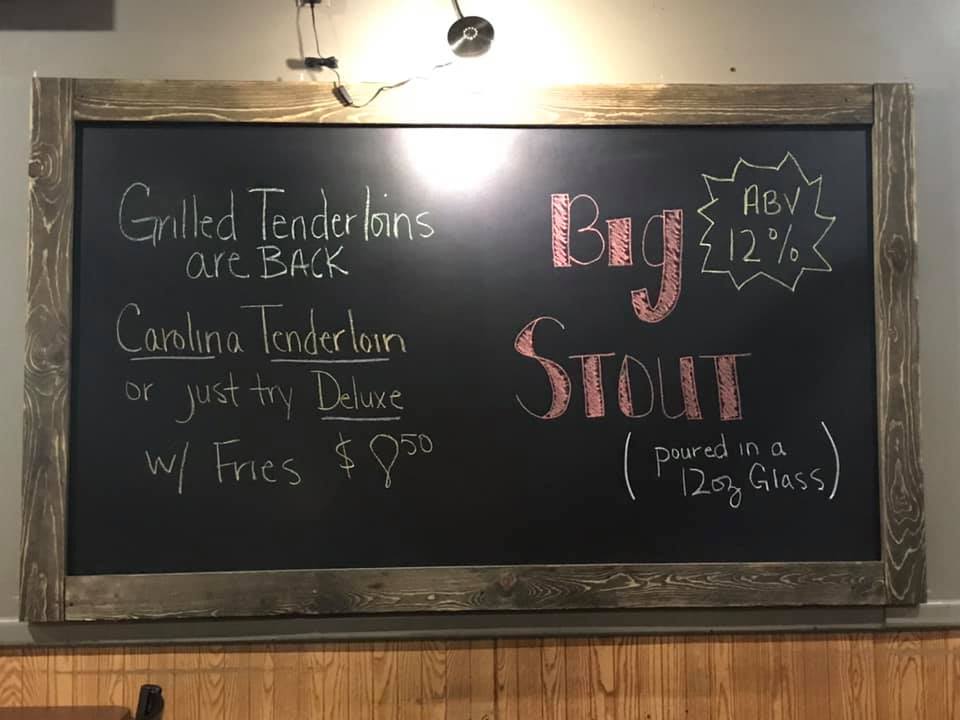 Grilled Tenderloins
are BACK
Carolina Tenderloin
or just try Deluxe
w/ Fries $ 8⁵⁰
Big
Stout
ABV
12%
(poured in a
12oz Glass)